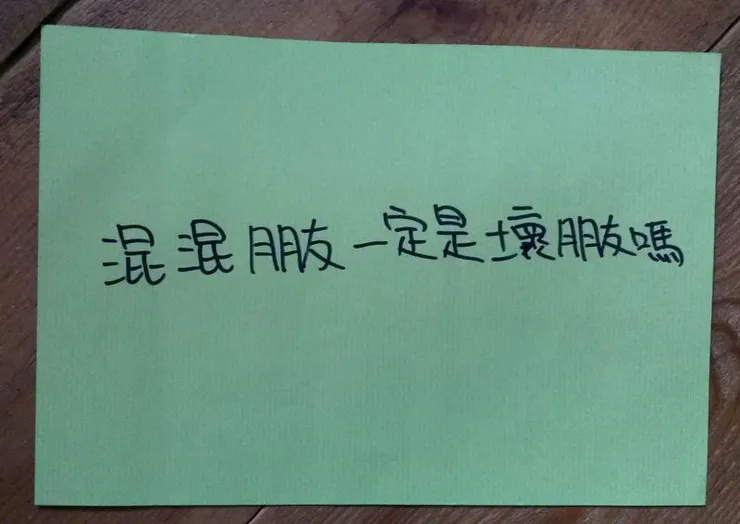 混混朋友一定是壞朋友嗎